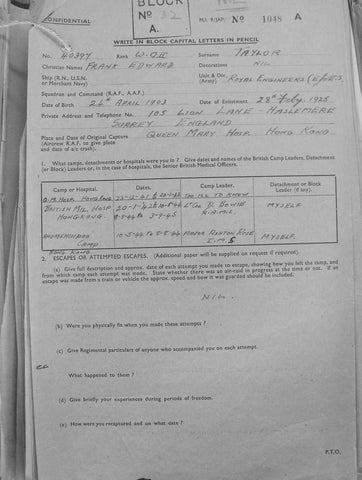 CONFIDENTIAL
BLOCK
No 32
A.
M.I. 9/JAP/ No 1048 A
WRITE IN BLOCK CAPITAL LETTERS IN PENCIL
No. 40397 Rank W.O II Surname TAYLOR
Christian Names FRANK EDWARD Decorations NIL
Ship (R.N., U.S.N. or Merchant Navy) Unit & Div. (Army) ROYAL ENGINEERS
Squadron and Command (R.A.F., A.A.F.)
Date of Birth 26th APRIL 1903 Date of Enlistment 28th Feby. 1925
Private Address and Telephone No. 105 LION LANE - HASLEMERE
SURREY ENGLAND
Place and Date of Original Capture QUEEN MARY HOSP HONG KONG.
(Aircrew R.A.F. to give place and date of a/c crash).
1. What camps, detachments or hospitals were you in ? Give dates and names of the British Camp Leaders, Detachment
(or Block) Leaders or, in the case of Hospitals, the Senior British Medical Officers.
Camp or Hospital. Dates. Camp Leader. Detachment or Block Leader (if any).
Q.M. HOSP HONGKONG TOO ILL TO KNOW
BRITISH MIL. HOSP HONGKONG. Lt Col D. BOWIE R.A.M.C. MYSELF
8-5-44 to 3-9-45
CAMP 10-3-44 to 8-5-44 I.M.S MYSELF
HONG KONG
2. ESCAPES OR ATTEMPTED ESCAPES. (Additional paper will be supplied on request if required).
(a) Give full description and approx. date of each attempt you made to escape, showing how you left the camp, and
from which camp each attempt was made. State whether there was an air-raid in progress at the time or not. If an
escape was made from a train or vehicle the approx. speed and how it was guarded should be included.
NIL.
(b) Were you physically fit when you made these attempts ?
(c) Give Regimental particulars of anyone who accompanied you on each attempt.
What happened to them ?
(d) Give briefly your experiences during periods of freedom.
(e) How were you recaptured and on what date ?
P.T.O.